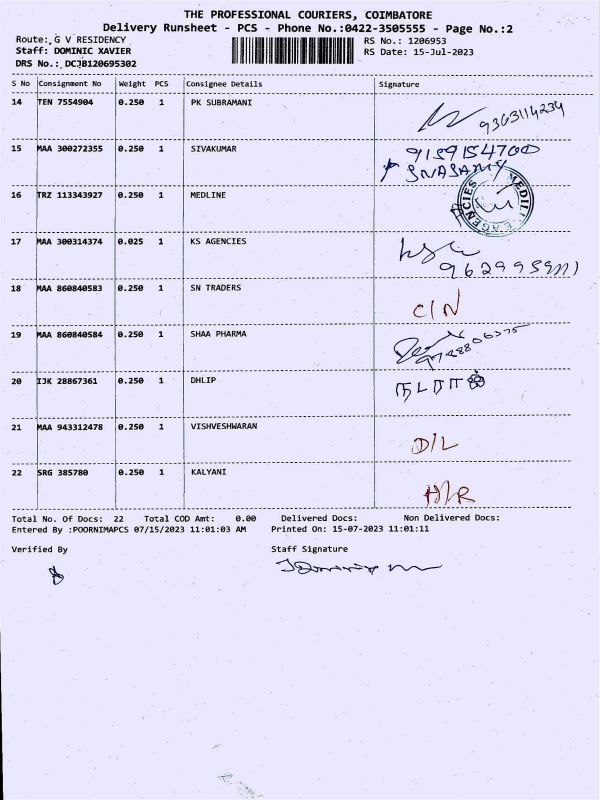 THE PROFESSIONAL COURIERS, COIMBATORE
Delivery Runsheet - PCS - Phone No.:0422-3505555 - Page No.:2
Route: G V RESIDENCY
RS No.: 1206953
Staff: DOMINIC XAVIER
RS Date: 15-Jul-2023
DRS No.: DCJB120695302
S No Consignment No Weight PCS Consignee Details Signature
14 TEN 7554904 0.250 1 PK SUBRAMANI
9363114234
15 MAA 300272355 0.250 1 SIVAKUMAR 9159154700
16 TRZ 113343927 0.250 1 MEDLINE
AGENCIES
17 MAA 300314374 0.025 1 KS AGENCIES
18 MAA 860840583 0.250 1 SN TRADERS
C/N
19 MAA 860840584 0.250 1 SHAA PHARMA
20 IJK 28867361 0.250 1 DHLIP
21 MAA 943312478 0.250 1 VISHVESHWARAN
D/L
22 SRG 385780 0.250 1 KALYANI
Total No. Of Docs: 22 Total COD Amt: 0.00 Delivered Docs: Non Delivered Docs:
Entered By :POORNIMAPCS 07/15/2023 11:01:03 AM Printed On: 15-07-2023 11:01:11
Verified By Staff Signature